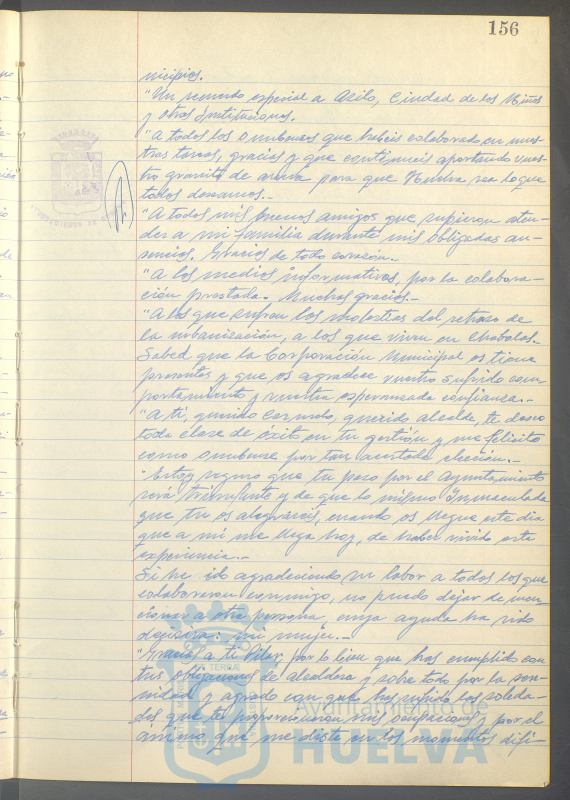 156
nicipios.
"Un recuerdo especial a Asilo, Ciudad de los Niños
y otras Instituciones.
"A todos los Onubenses que habeis colaborado en nues-
tras tareas, gracias y que continueis aportando vues-
tro granito de arena para que Huelva sea lo que
todos deseamos.-
"A todos mis buenos amigos que supieron aten-
der a mi familia durante mis obligadas au-
sencias. Gracias de todo corazón.-
"A los medios informativos, por la colabora-
ción prestada. Muchas gracias.-
"A los que sufren las molestias del retraso de
la urbanización, a los que viven en Chabolas.
Sabed que la Corporación Municipal os tiene
presentes y que os agradece vuestro sufrido com-
portamiento y vuestra esperanzada confianza.-
"A ti, querido querido alcalde, te deseo
toda clase de éxito en tu gestión y me felicito
como onubense por tan acertada elección.-
"Estoy seguro que tu paso por el Ayuntamiento
será triunfante y de que lo mismo Inmaculada
que tu os alegrareis, cuando os llegue este dia
que a mi me llega hoy, de haber vivido esta
experiencia.-
Si he ido agradeciendo su labor a todos los que
colaboraron conmigo, no puedo dejar de men-
cionar a otra persona, cuya ayuda ha sido
decisiva: mi mujer.-
"Gracias a ti por lo bien que has cumplido con
tus obligaciones de alcaldesa y sobre todo por la sere-
nidad y agrado con que has sufrido las soleda-
des que te proporcionaron mis ocupaciones y por el
ánimo que me diste en los momentos difi-
Ayuntamiento de
HUELVA